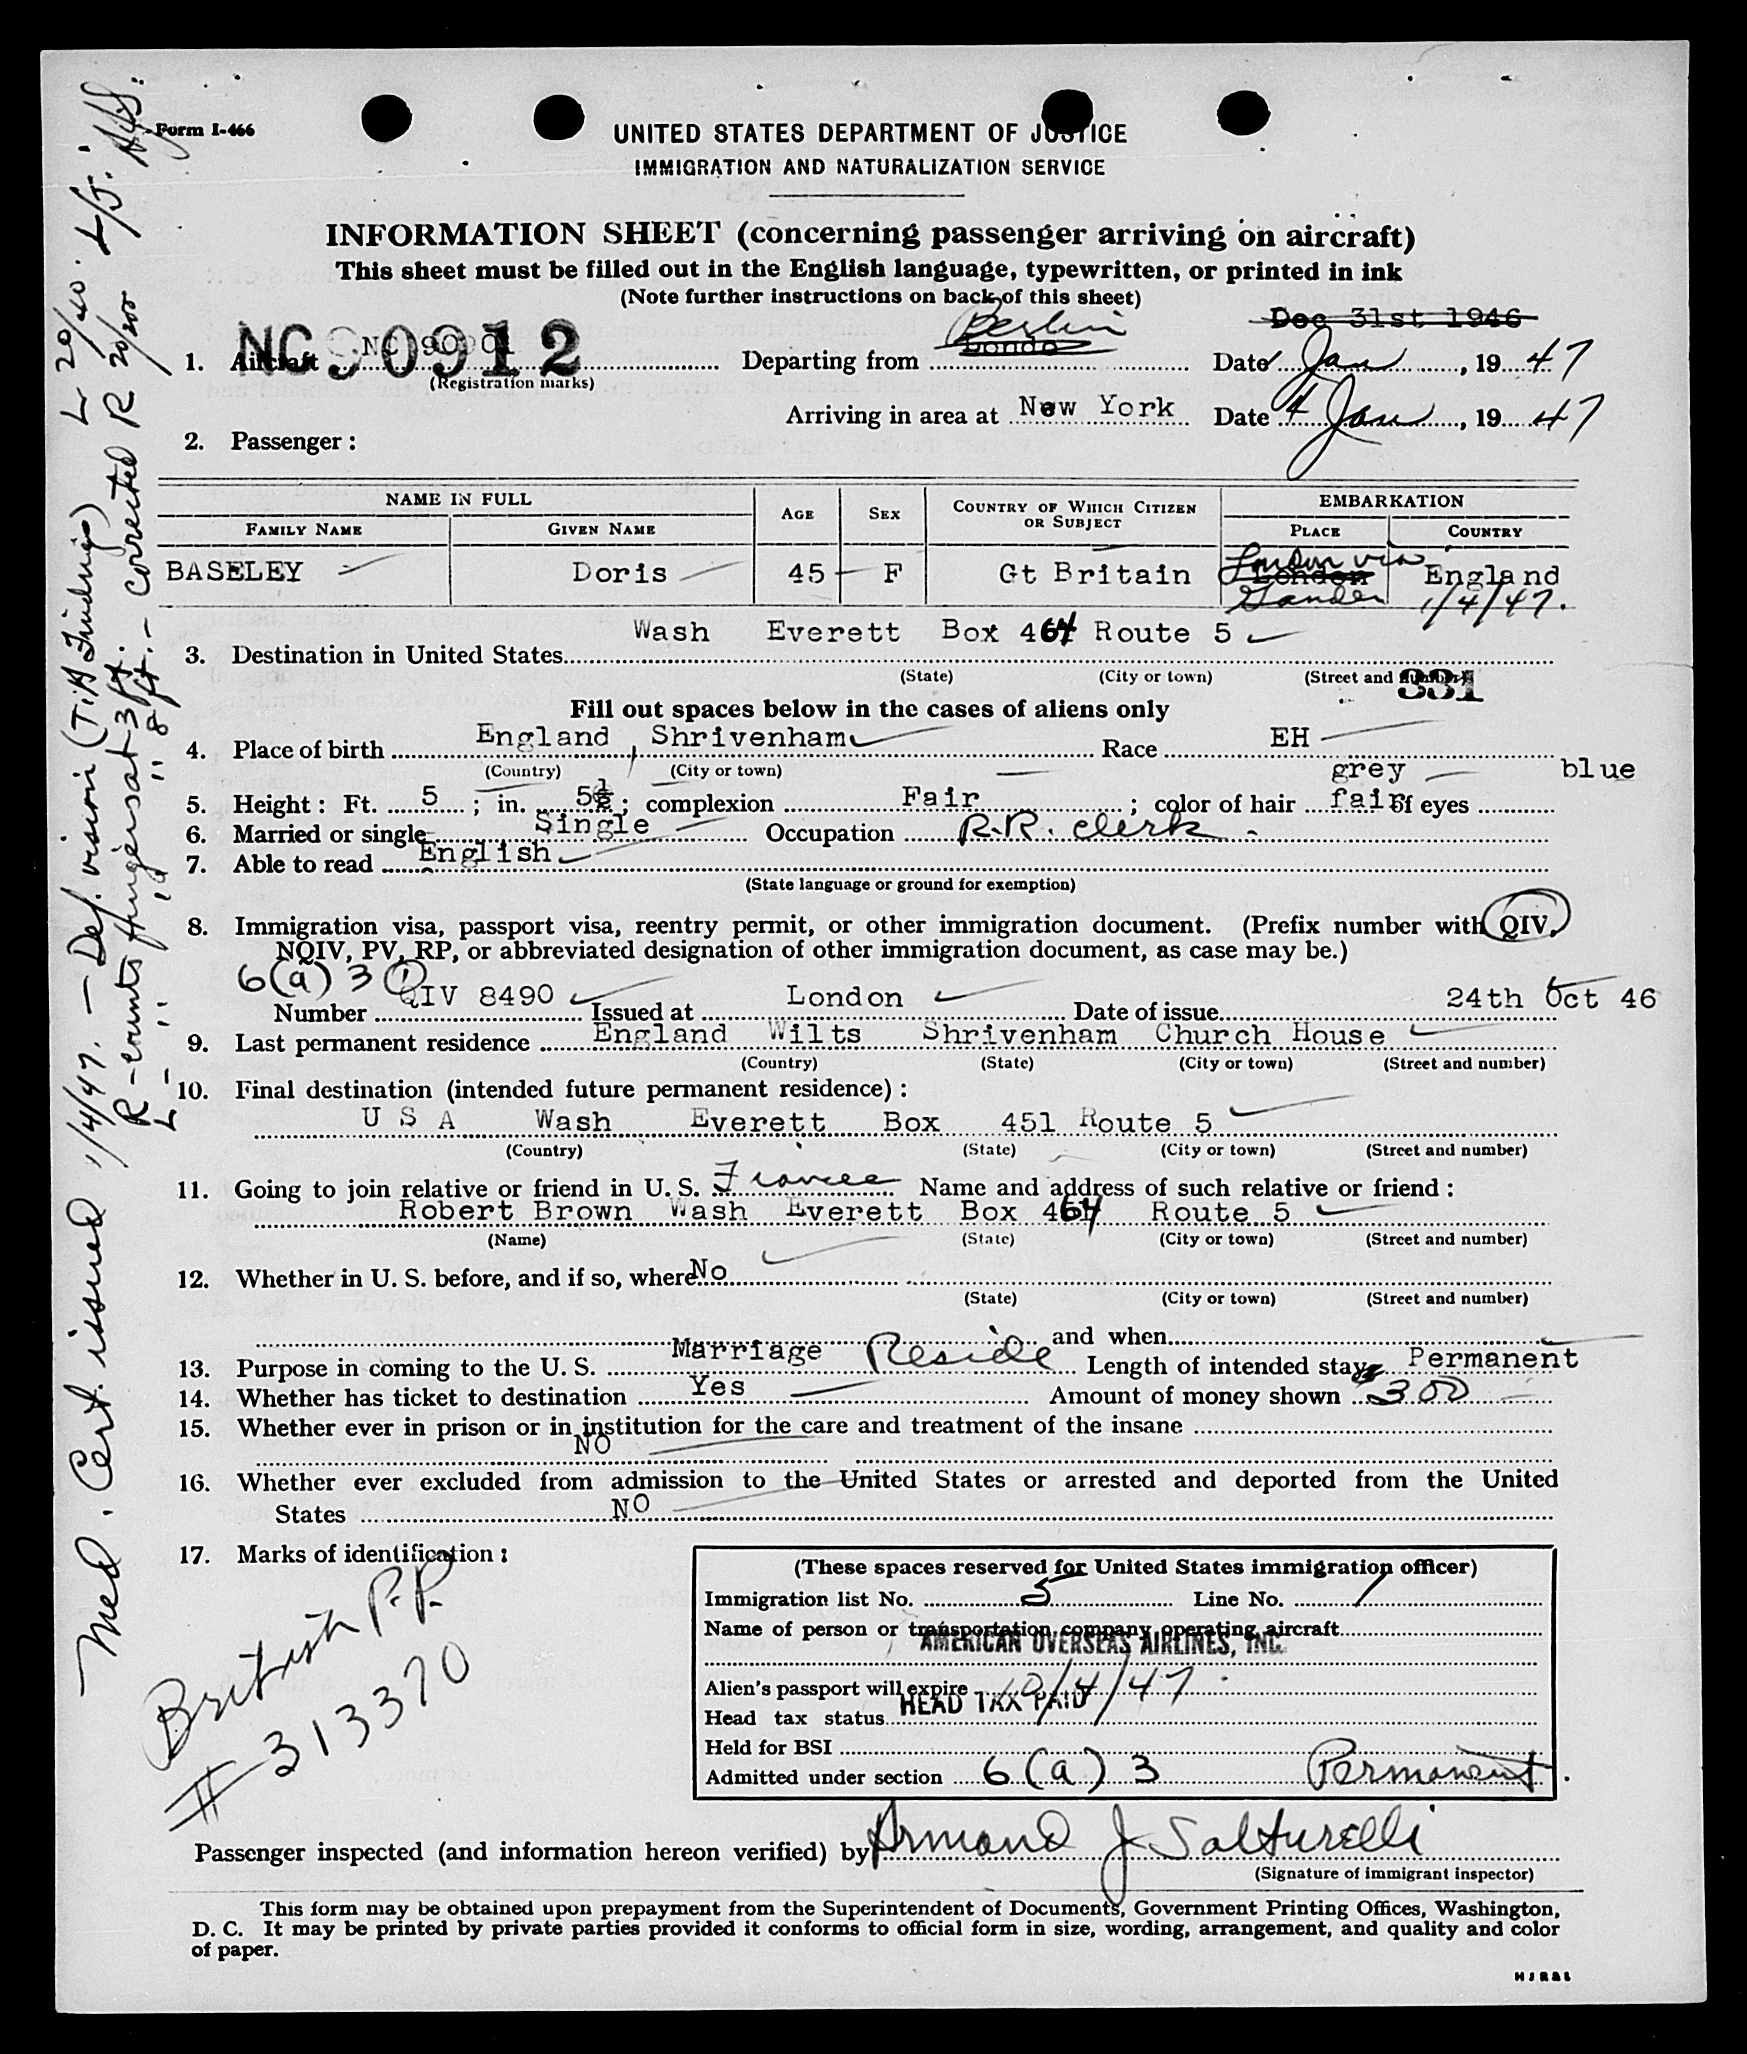 Form I-466
UNITED STATES DEPARTMENT OF JUSTICE
IMMIGRATION AND NATURALIZATION SERVICE
INFORMATION SHEET (concerning passenger arriving on aircraft)
This sheet must be filled out in the English language, typewritten, or printed in ink
(Note further instructions on back of this sheet)
Berlin Dec 31st 1946
1. Aircraft NC90912 Departing from Date Jan, 1947
(Registration marks)
Arriving in area at New York Date 4 Jan, 1947
2. Passenger:
NAME IN FULL AGE SEX COUNTRY OF WHICH CITIZEN OR SUBJECT EMBARKATION
FAMILY NAME GIVEN NAME PLACE COUNTRY
BASELEY Doris 45 F Gt Britain London via London Gander England 1/4/47.
Wash Everett Box 464 Route 5
3. Destination in United States
(State) (City or town) (Street and number)
331
Fill out spaces below in the cases of aliens only
4. Place of birth England, Shrivenham Race EH
(Country) (City or town)
grey blue
5. Height: Ft. 5; in. 5½; complexion Fair; color of hair fair of eyes
6. Married or single Single Occupation R.R. clerk
7. Able to read English
(State language or ground for exemption)
8. Immigration visa, passport visa, reentry permit, or other immigration document. (Prefix number with QIV,
NQIV, PV, RP, or abbreviated designation of other immigration document, as case may be.)
6(a) 3 (1)
Number QIV 8490 Issued at London Date of issue 24th Oct 46
9. Last permanent residence England Wilts Shrivenham Church House
(Country) (State) (City or town) (Street and number)
10. Final destination (intended future permanent residence):
U S A Wash Everett Box 451 Route 5
(Country) (State) (City or town) (Street and number)
11. Going to join relative or friend in U. S. Fiancee Name and address of such relative or friend:
Robert Brown Wash Everett Box 464 Route 5
(Name) (State) (City or town) (Street and number)
12. Whether in U. S. before, and if so, where No
(State) (City or town) (Street and number)
and when
13. Purpose in coming to the U. S. Marriage Reside Length of intended stay Permanent
14. Whether has ticket to destination Yes Amount of money shown $300
15. Whether ever in prison or in institution for the care and treatment of the insane
NO
16. Whether ever excluded from admission to the United States or arrested and deported from the United
States NO
17. Marks of identification:
British P.P.
# 313370
(These spaces reserved for United States immigration officer)
Immigration list No. 5 Line No. 1
Name of person or transportation company operating aircraft
AMERICAN OVERSEAS AIRLINES, INC.
Alien's passport will expire 10/4/47
Head tax status HEAD TAX PAID
Held for BSI
Admitted under section 6(a) 3 Permanent.
Passenger inspected (and information hereon verified) by Armand J Salturelli
(Signature of immigrant inspector)
This form may be obtained upon prepayment from the Superintendent of Documents, Government Printing Offices, Washington,
D. C. It may be printed by private parties provided it conforms to official form in size, wording, arrangement, and quality and color
of paper.
Med. Cert. issued 1/4/47. — Def. vision (T.A. Findings) L 20/40.
R - counts fingers at 3 ft. - corrected R 20/200
L - " " " 8 ft.